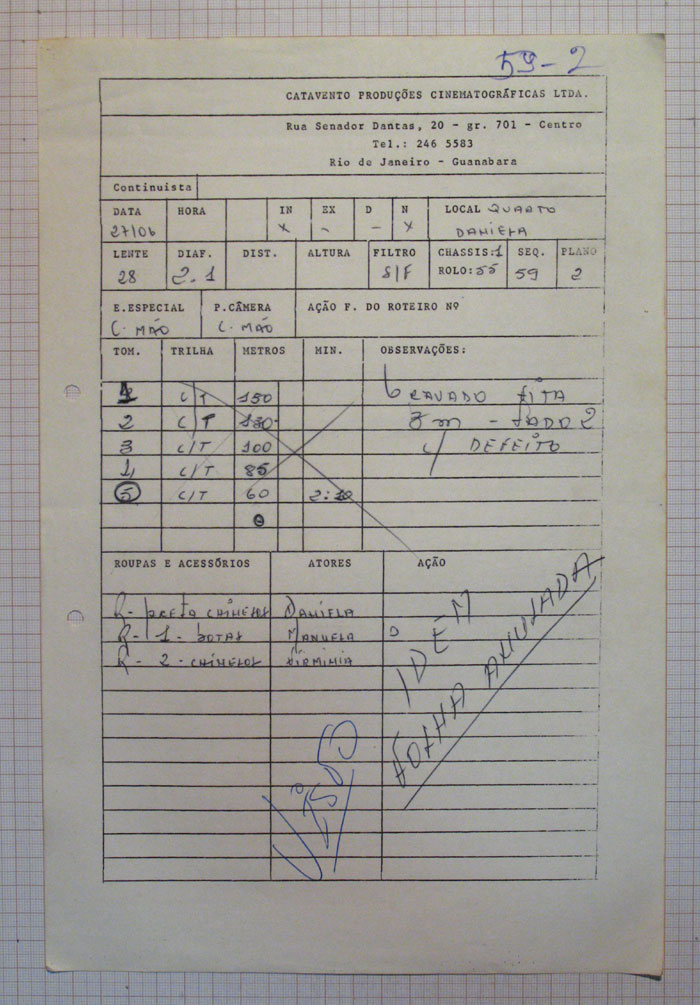 59-2
CATAVENTO PRODUÇÕES CINEMATOGRÁFICAS LTDA.
Rua Senador Dantas, 20 - gr. 701 - Centro
Tel.: 246 5583
Rio de Janeiro - Guanabara
Continuista
DATA HORA IN EX D N LOCAL QUARTO
27/06 X - - X DANIELA
LENTE DIAF. DIST. ALTURA FILTRO CHASSIS:1 SEQ. PLANO
28 2.1 S/F ROLO:55 59 2
E.ESPECIAL P.CÂMERA AÇÃO F. DO ROTEIRO Nº
C. MÃO C. MÃO
TOM. TRILHA METROS MIN. OBSERVAÇÕES:
1 C/T 150 GRAVADO FITA
2 C/T 130 8m - LADO 2
3 C/T 100 C/ DEFEITO
4 C/T 85
5 C/T 60 2:10
ROUPAS E ACESSÓRIOS ATORES AÇÃO
R- preta CHINELOS DANIELA
R- 1 - BOTAS MANUELA
R- 2 - CHINELOS
IDÉM
FOLHA ANULADA